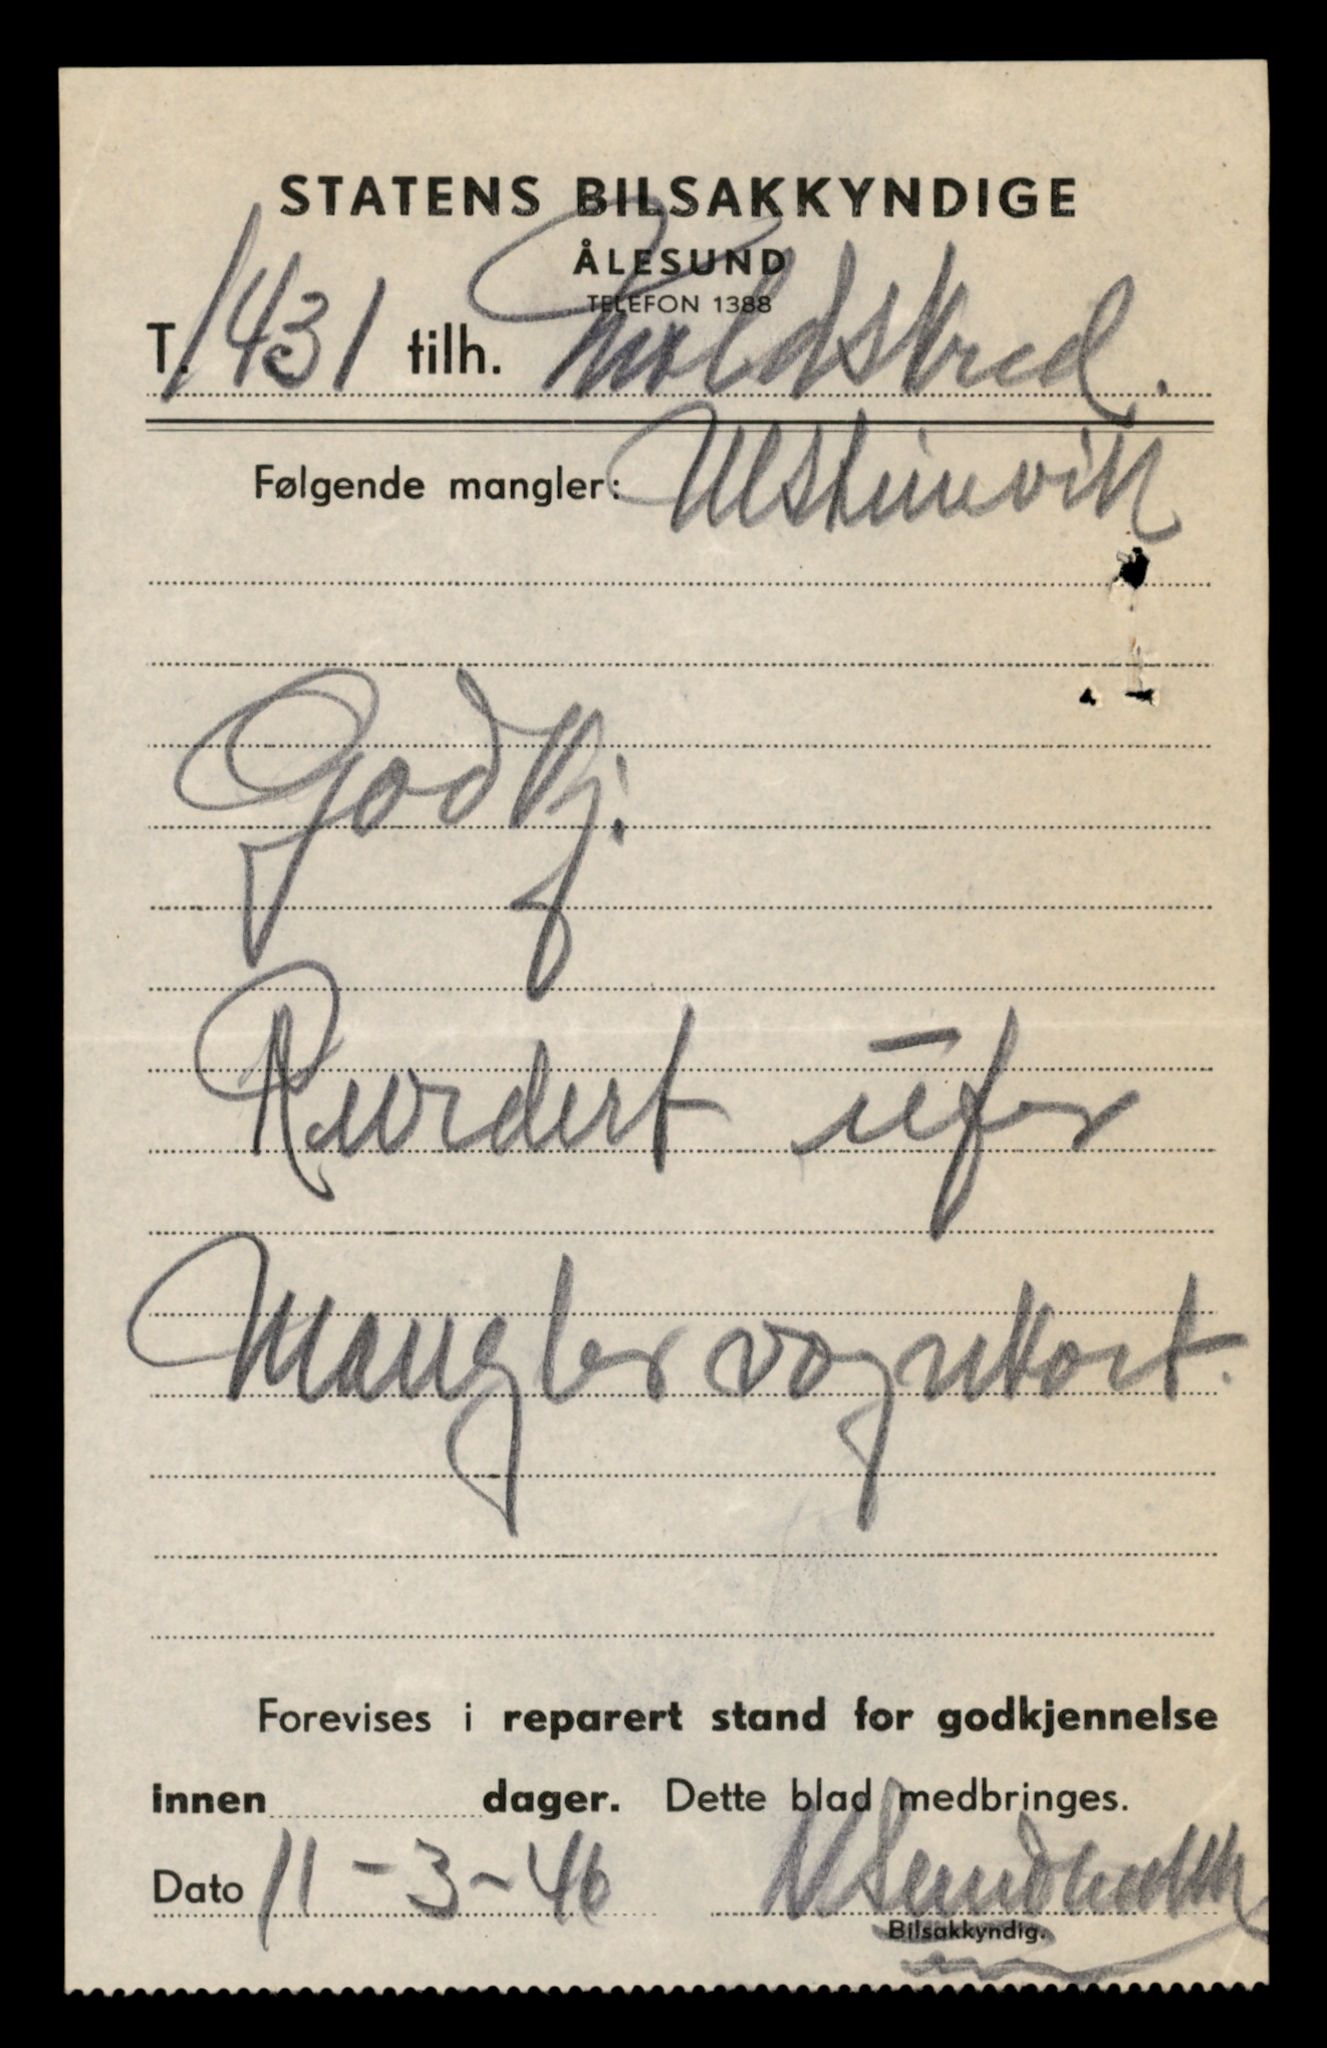 STATENS BILSAKKYNDIGE
ÅLESUND
TELEFON 1388
T. 1431 tilh. Moldstad.
Følgende mangler: Ulsteinvik
Godkj.
Revidert
Mangler vognkort.
Forevises i reparert stand for godkjennelse
innen dager. Dette blad medbringes.
Dato 11-3-46
Bilsakkyndig.